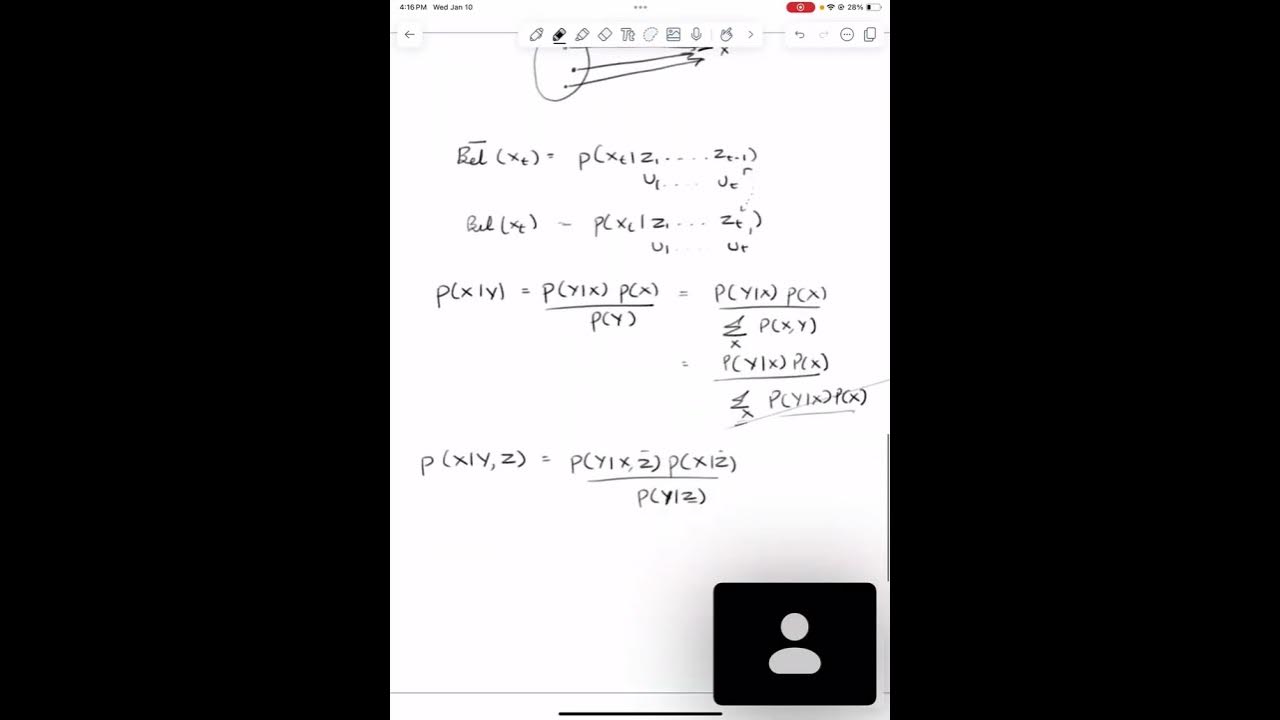 4:16 PM Wed Jan 10
28%
Tt
x
B̅e̅l̅ (x_t) = p(x_t | z_1 ..... z_{t-1})
u_1 .... u_t
Bel (x_t) – p(x_t | z_1 .... z_t,)
u_1 .... u_t
p(X|Y) = p(Y|X) p(X) = P(Y|X) p(X)
P(Y)
Σ P(X,Y)
X
= P(Y|X) P(X)
Σ P(Y|X) P(X)
X
p(X|Y, Z) = P(Y|X, Z) p(X|Z)
P(Y|Z)